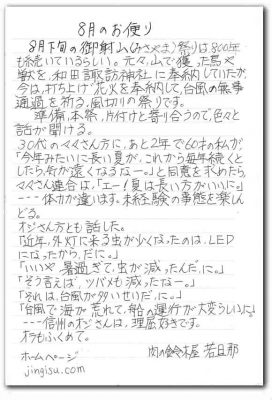 8月のお便り
8月下旬の御射山(みさやま)祭りは800年
も続いているらしい。元々、山で獲った鳥や
獣を、和田諏訪神社に奉納していたが、
今は、打ち上げ花火を奉納して、台風の無事
通過を祈る、風切りの祭りです。
準備、本祭、片付けと寄り合うので、色々と
話が聞ける。
30代のママさん方に、あと2年で60才の私が、
「今年みたいに長い夏が、これから毎年続くと
したら、気が遠くなるなー。」と同意を求めたら
ママさん連合は、「エー!夏は長い方がいいに」
---体力が違います。未経験の事態を楽しん
どる。
オジさん方とも話した。
「近年、外灯に来る虫が少くなったのは、LED
になったから、だに。」
「いいや、暑過ぎて、虫が減ったんだに。」
「そう言えば、ツバメも減ったなー。」
「それは、台風が多いせいだに。」
「台風で海が荒れて、船の運行が大変らしいに」
---信州のオジさんは、理屈好きです。
オラもふくめて。
ホームページ 肉の鈴木屋 若旦那
jingisu.com